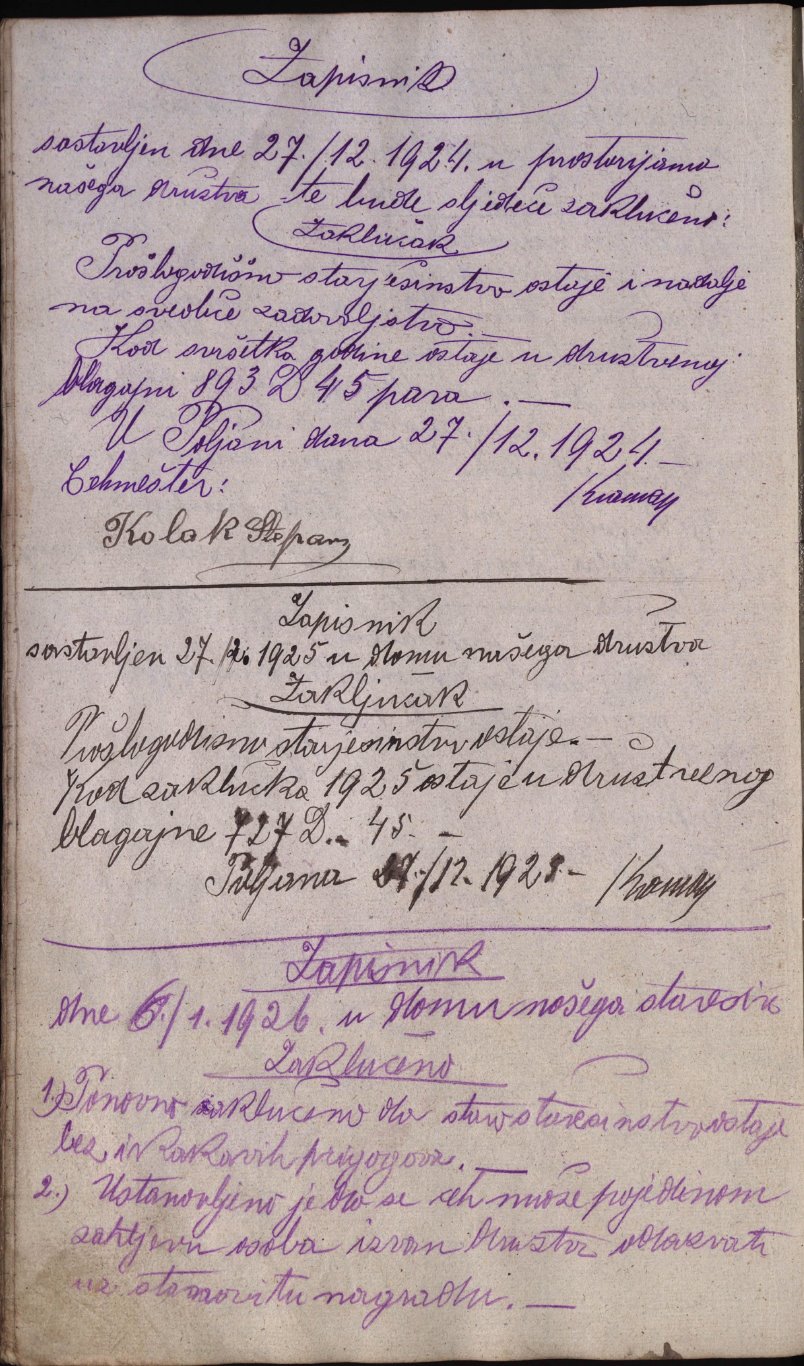 Zapisnik
sastavljen dne 27./12. 1924. u prostorijama
našega društva te bude sljedeće zaklučeno:
Zaklučak
Prošlogodišno starješinstvo ostaje i nadalje
na sveobće zadovoljstvo. —
Kod svršetka godine ostaje u društvenoj
blagajni 893 D 45 para. —
U Poljani dana 27./12. 1924. —
Cehmešter:
Kolak Stepan
Zapisnik
sastavljen 27./12. 1925 u domu našega društva
Zaključak
Prošlogodisno starjesinstvo ostaje. —
Kod zaklučka 1925 ostaje u drustvenoj
blagajne 727 D. 45. —
Poljana 27./12. 1925. —
Zapisnik
dne 6./1. 1926. u domu našega staresine
Zaklučeno
1.) Ponovno zaklučeno da staro staresinstvo ostaje
bez ikakavih prigogora. —
2.) Ustanovljeno je da se ceh može pojedinom
zahtjevu osoba izvan drustva odazvati
uz stanovitu nagradu. —